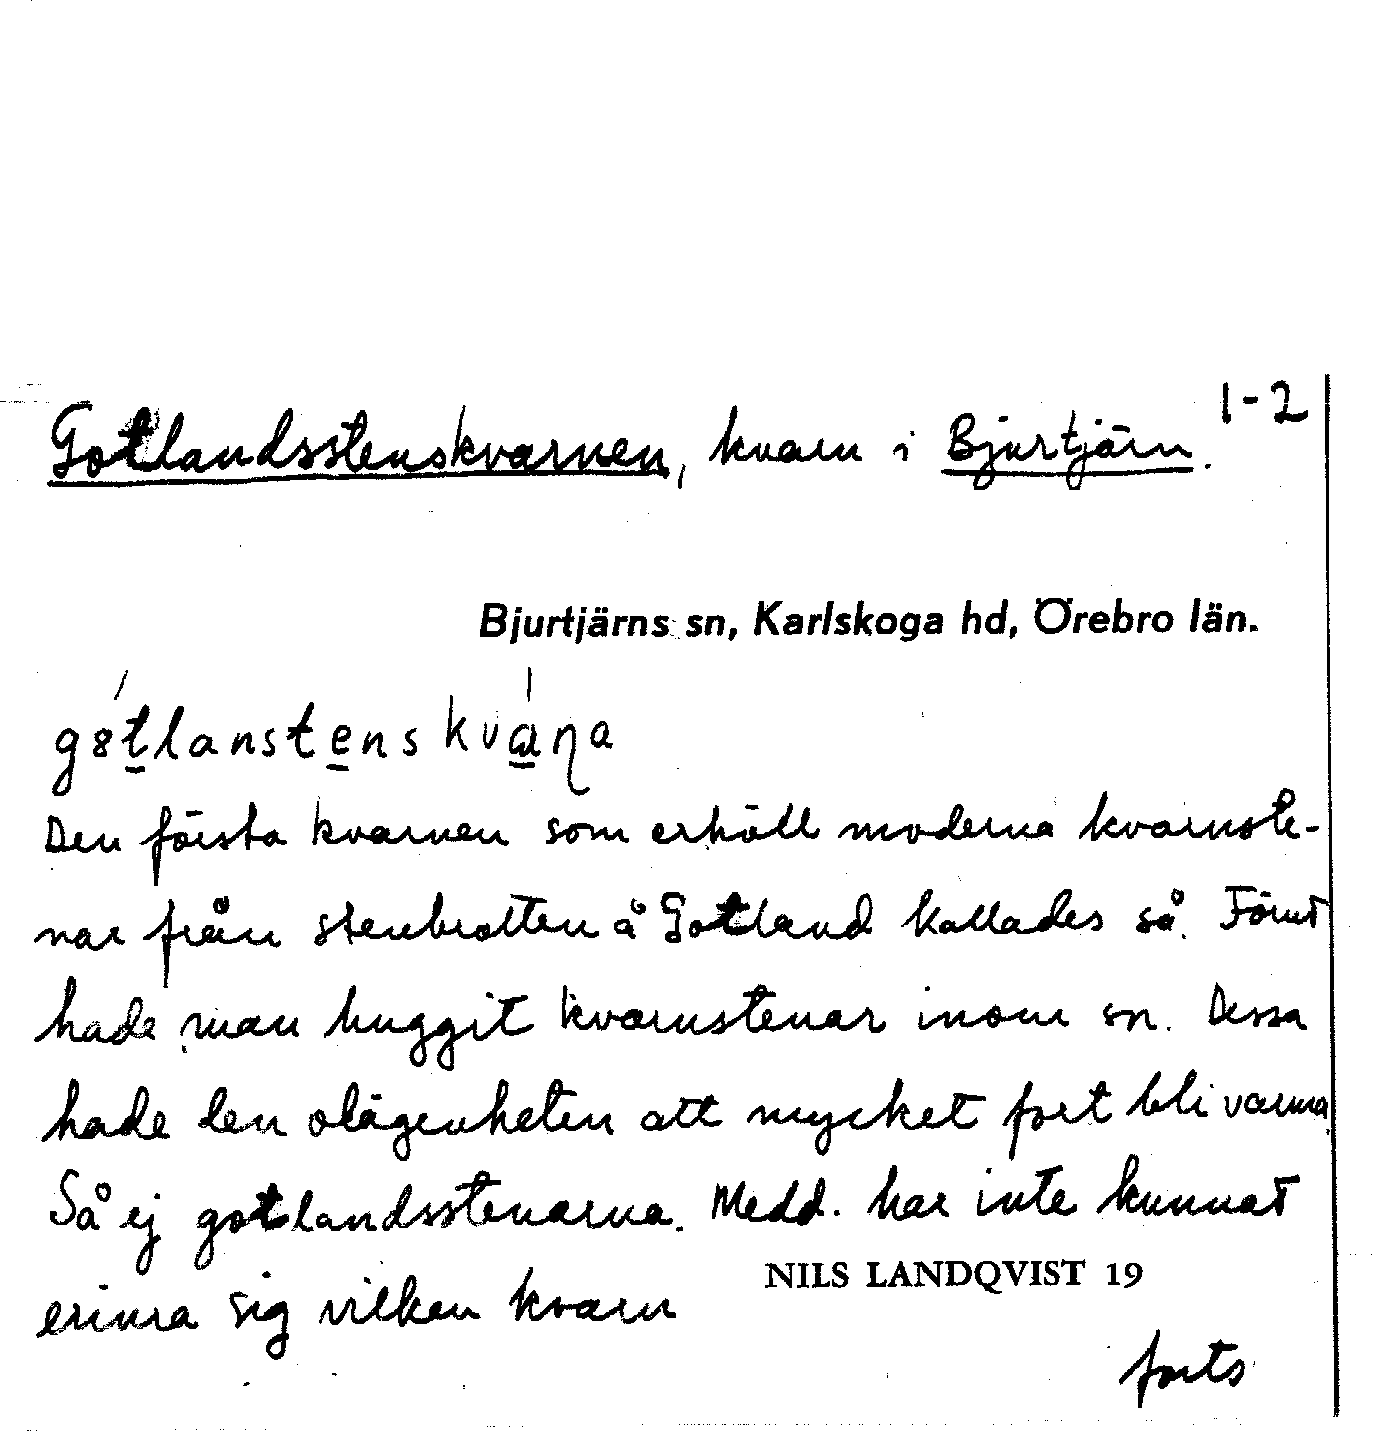 1-2
Gotlandsstenskvarnen, kvarn i Bjurtjärn.
Bjurtjärns sn, Karlskoga hd, Örebro län.
g8tlanstenskvaɳa
Den första kvarnen som erhöll moderna kvarnste-
nar från stenbrotten å Gotland kallades så. Förut
hade man huggit kvarnstenar inom sn. Dessa
hade den olägenheten att mycket fort bli varma
Så ej gotlandsstenarna. Medd. har inte kunnat
erinra sig vilken kvarn
NILS LANDQVIST 19
forts